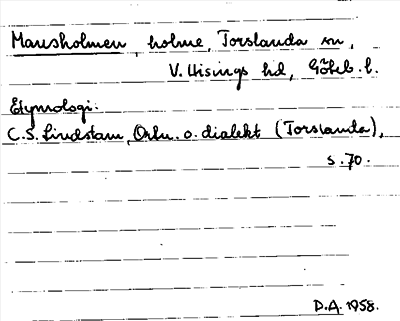 Mansholmen, holme, Torslanda sn,
V. Hisings hd, Göteb. l.
Etymologi:
C.S. Lindstam, Ortn. o. dialekt (Torslanda),
s. 70.
D.A. 1958.